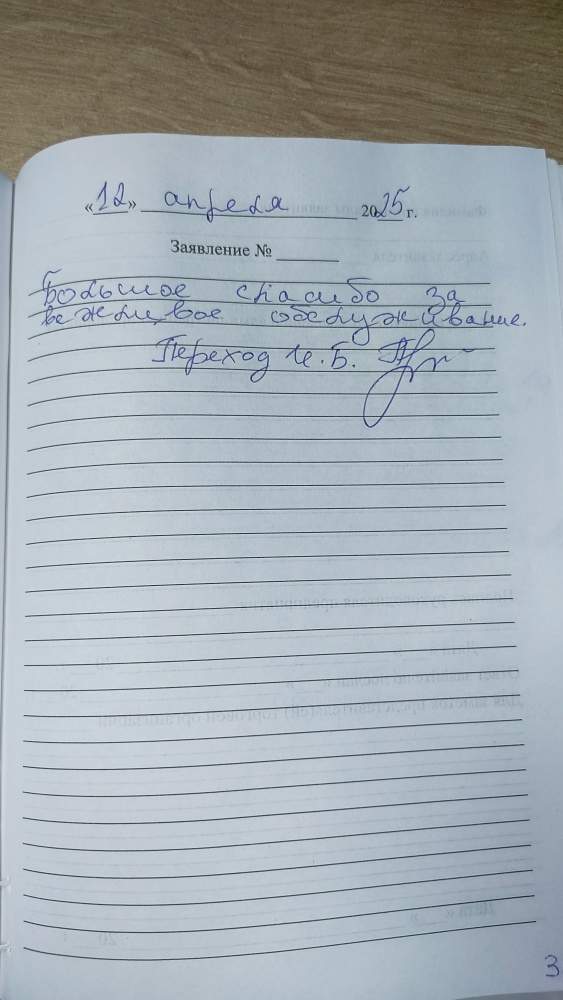 «12» апреля 2025 г.
Заявление №
Большое спасибо за
вежливое обслуживание.
Переход И. Б.
3